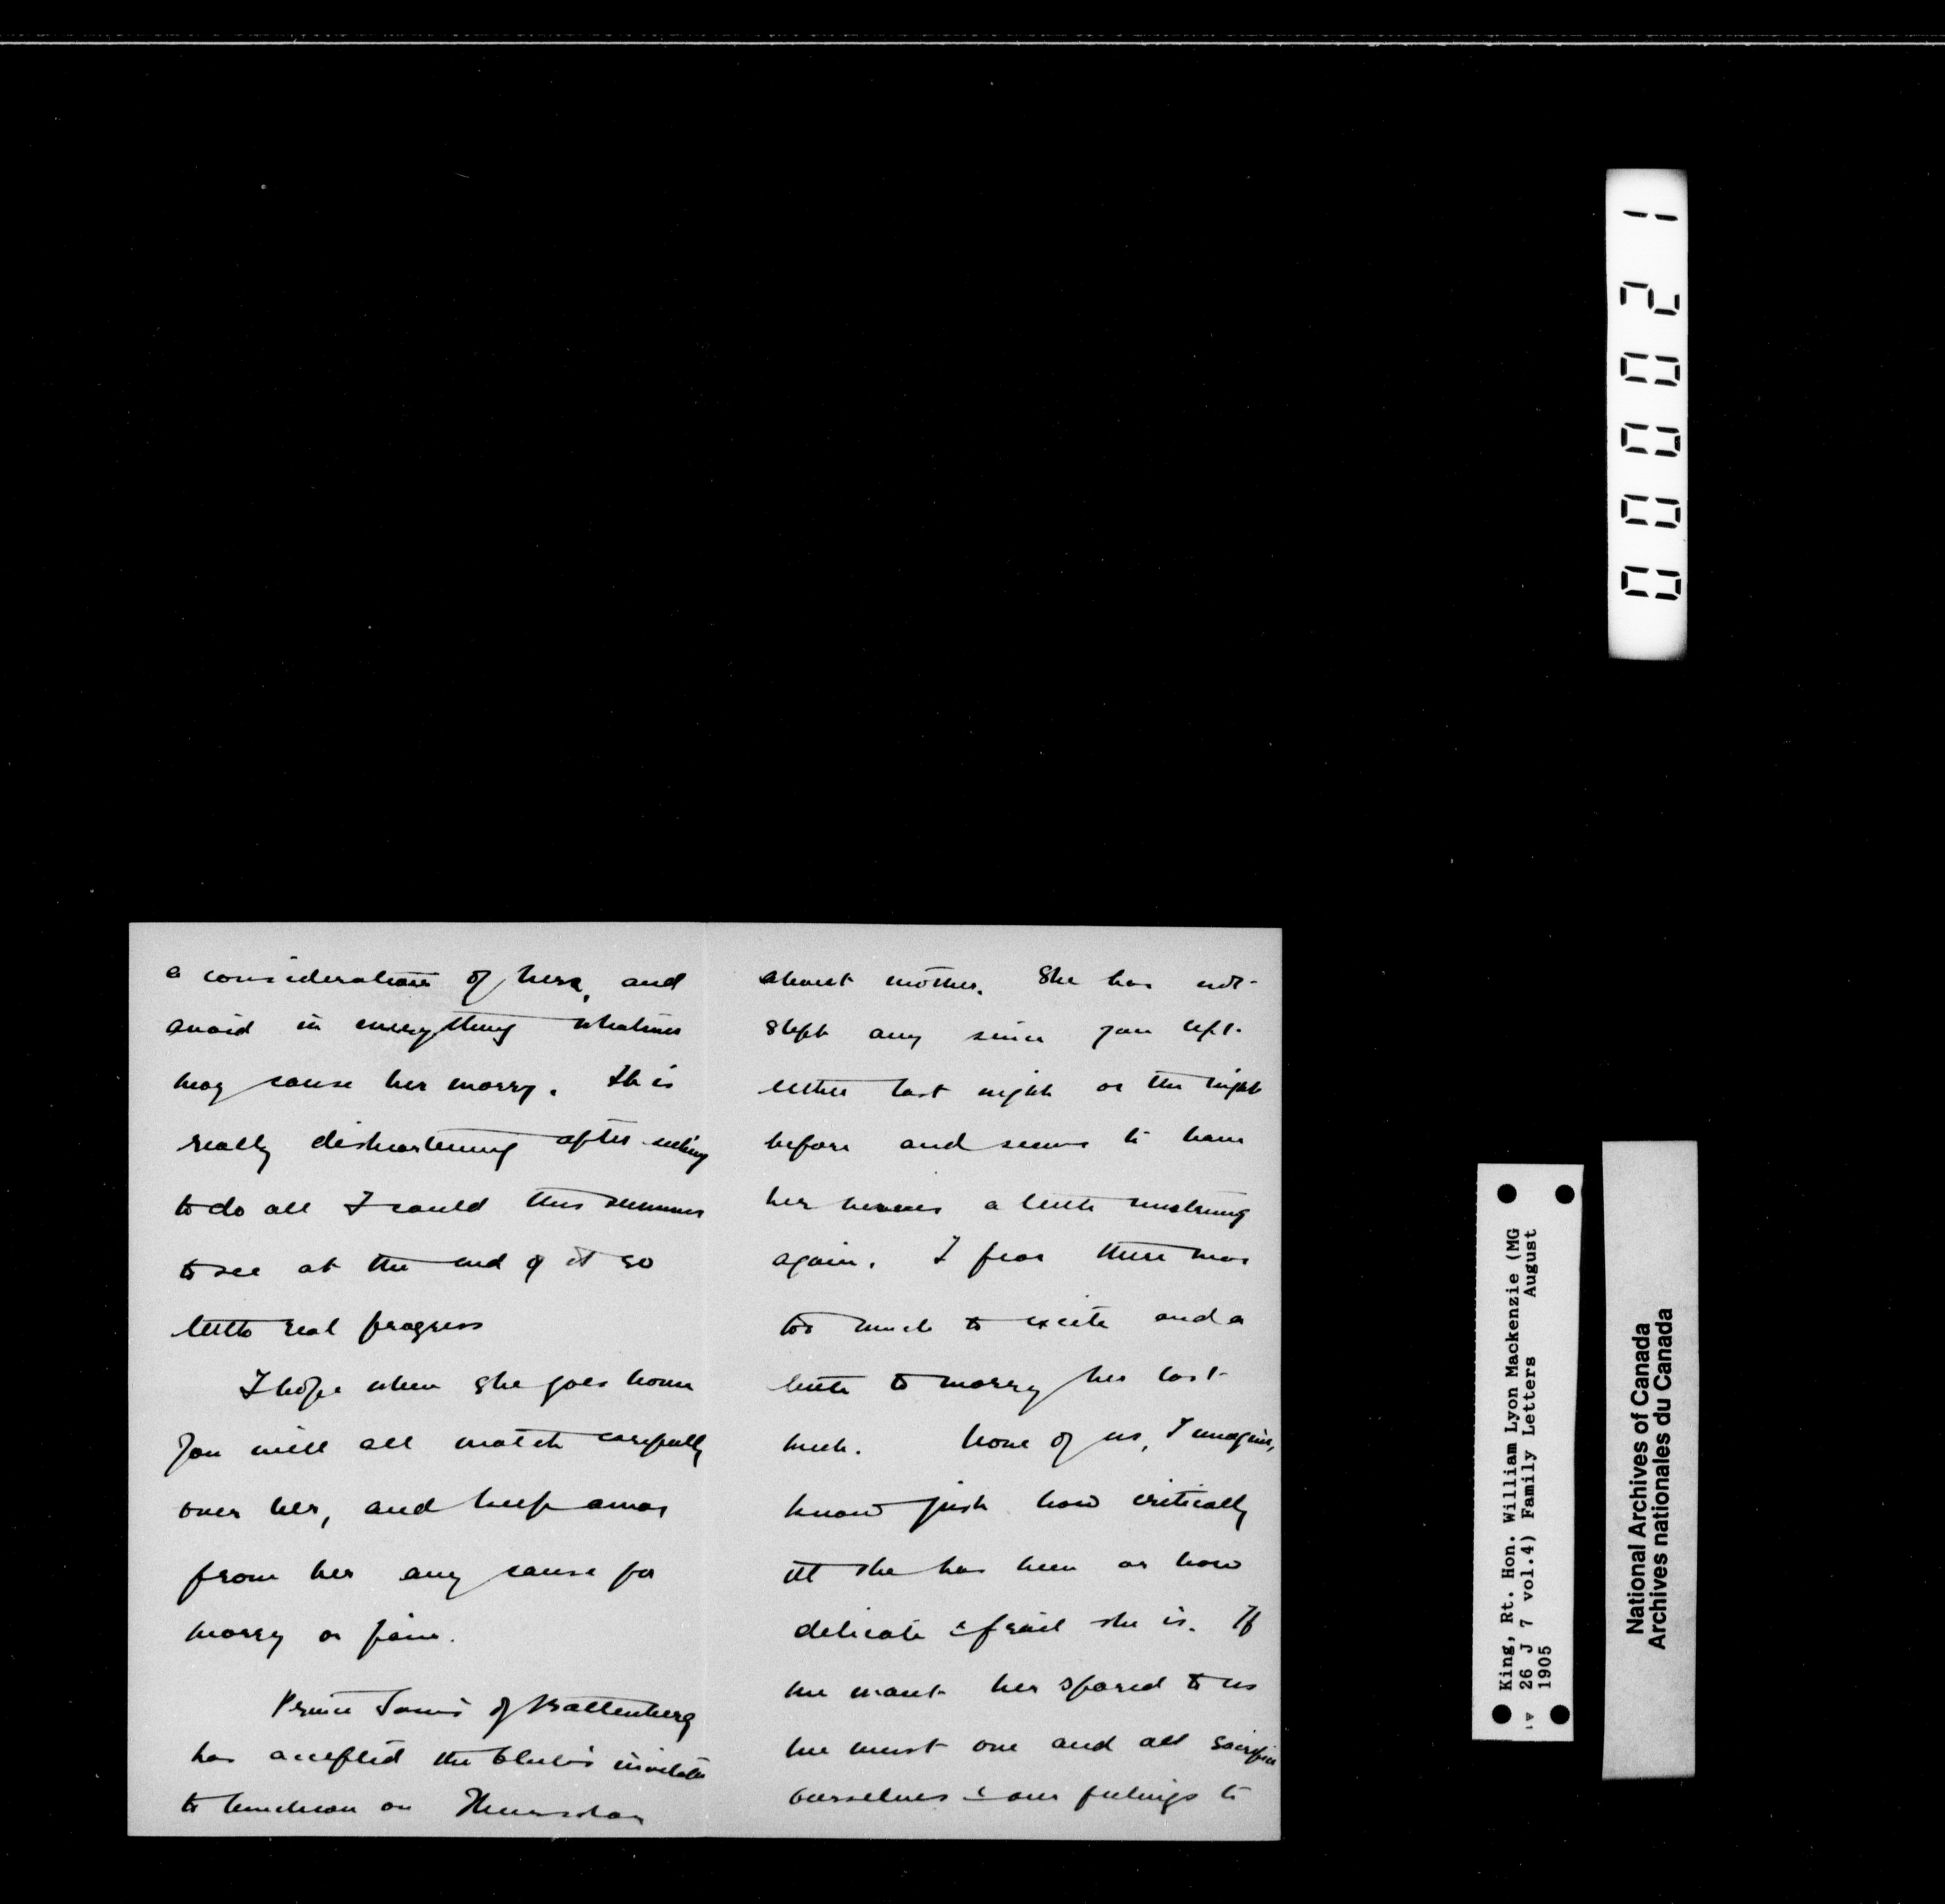 about mother. She has not
slept any since you left
either last night or the night
before and seems to have
her nerves a little unstrung
again. I fear there was
too much to excite and a
little to worry her last
week. None of us, I imagine,
know just how critically
ill she has been or how
delicate & frail she is. If
we want her spared to us
we must one and all sacrifice
ourselves & our feelings to
a consideration of hers, and
avoid in everything whatever
may cause her worry. It is
really disheartening after seeking
to do all I could this summer
to see at the end of it so
little real progress
I hope when she goes home
you will all watch carefully
over her, and keep away
from her any cause for
worry or pain.
Prince Louis of Battenberg
has accepted the Club's invitation
to luncheon on Thursday
000021
King, Rt. Hon. William Lyon Mackenzie (MG
26 J 7 vol.4) Family Letters August
1905
National Archives of Canada
Archives nationales du Canada